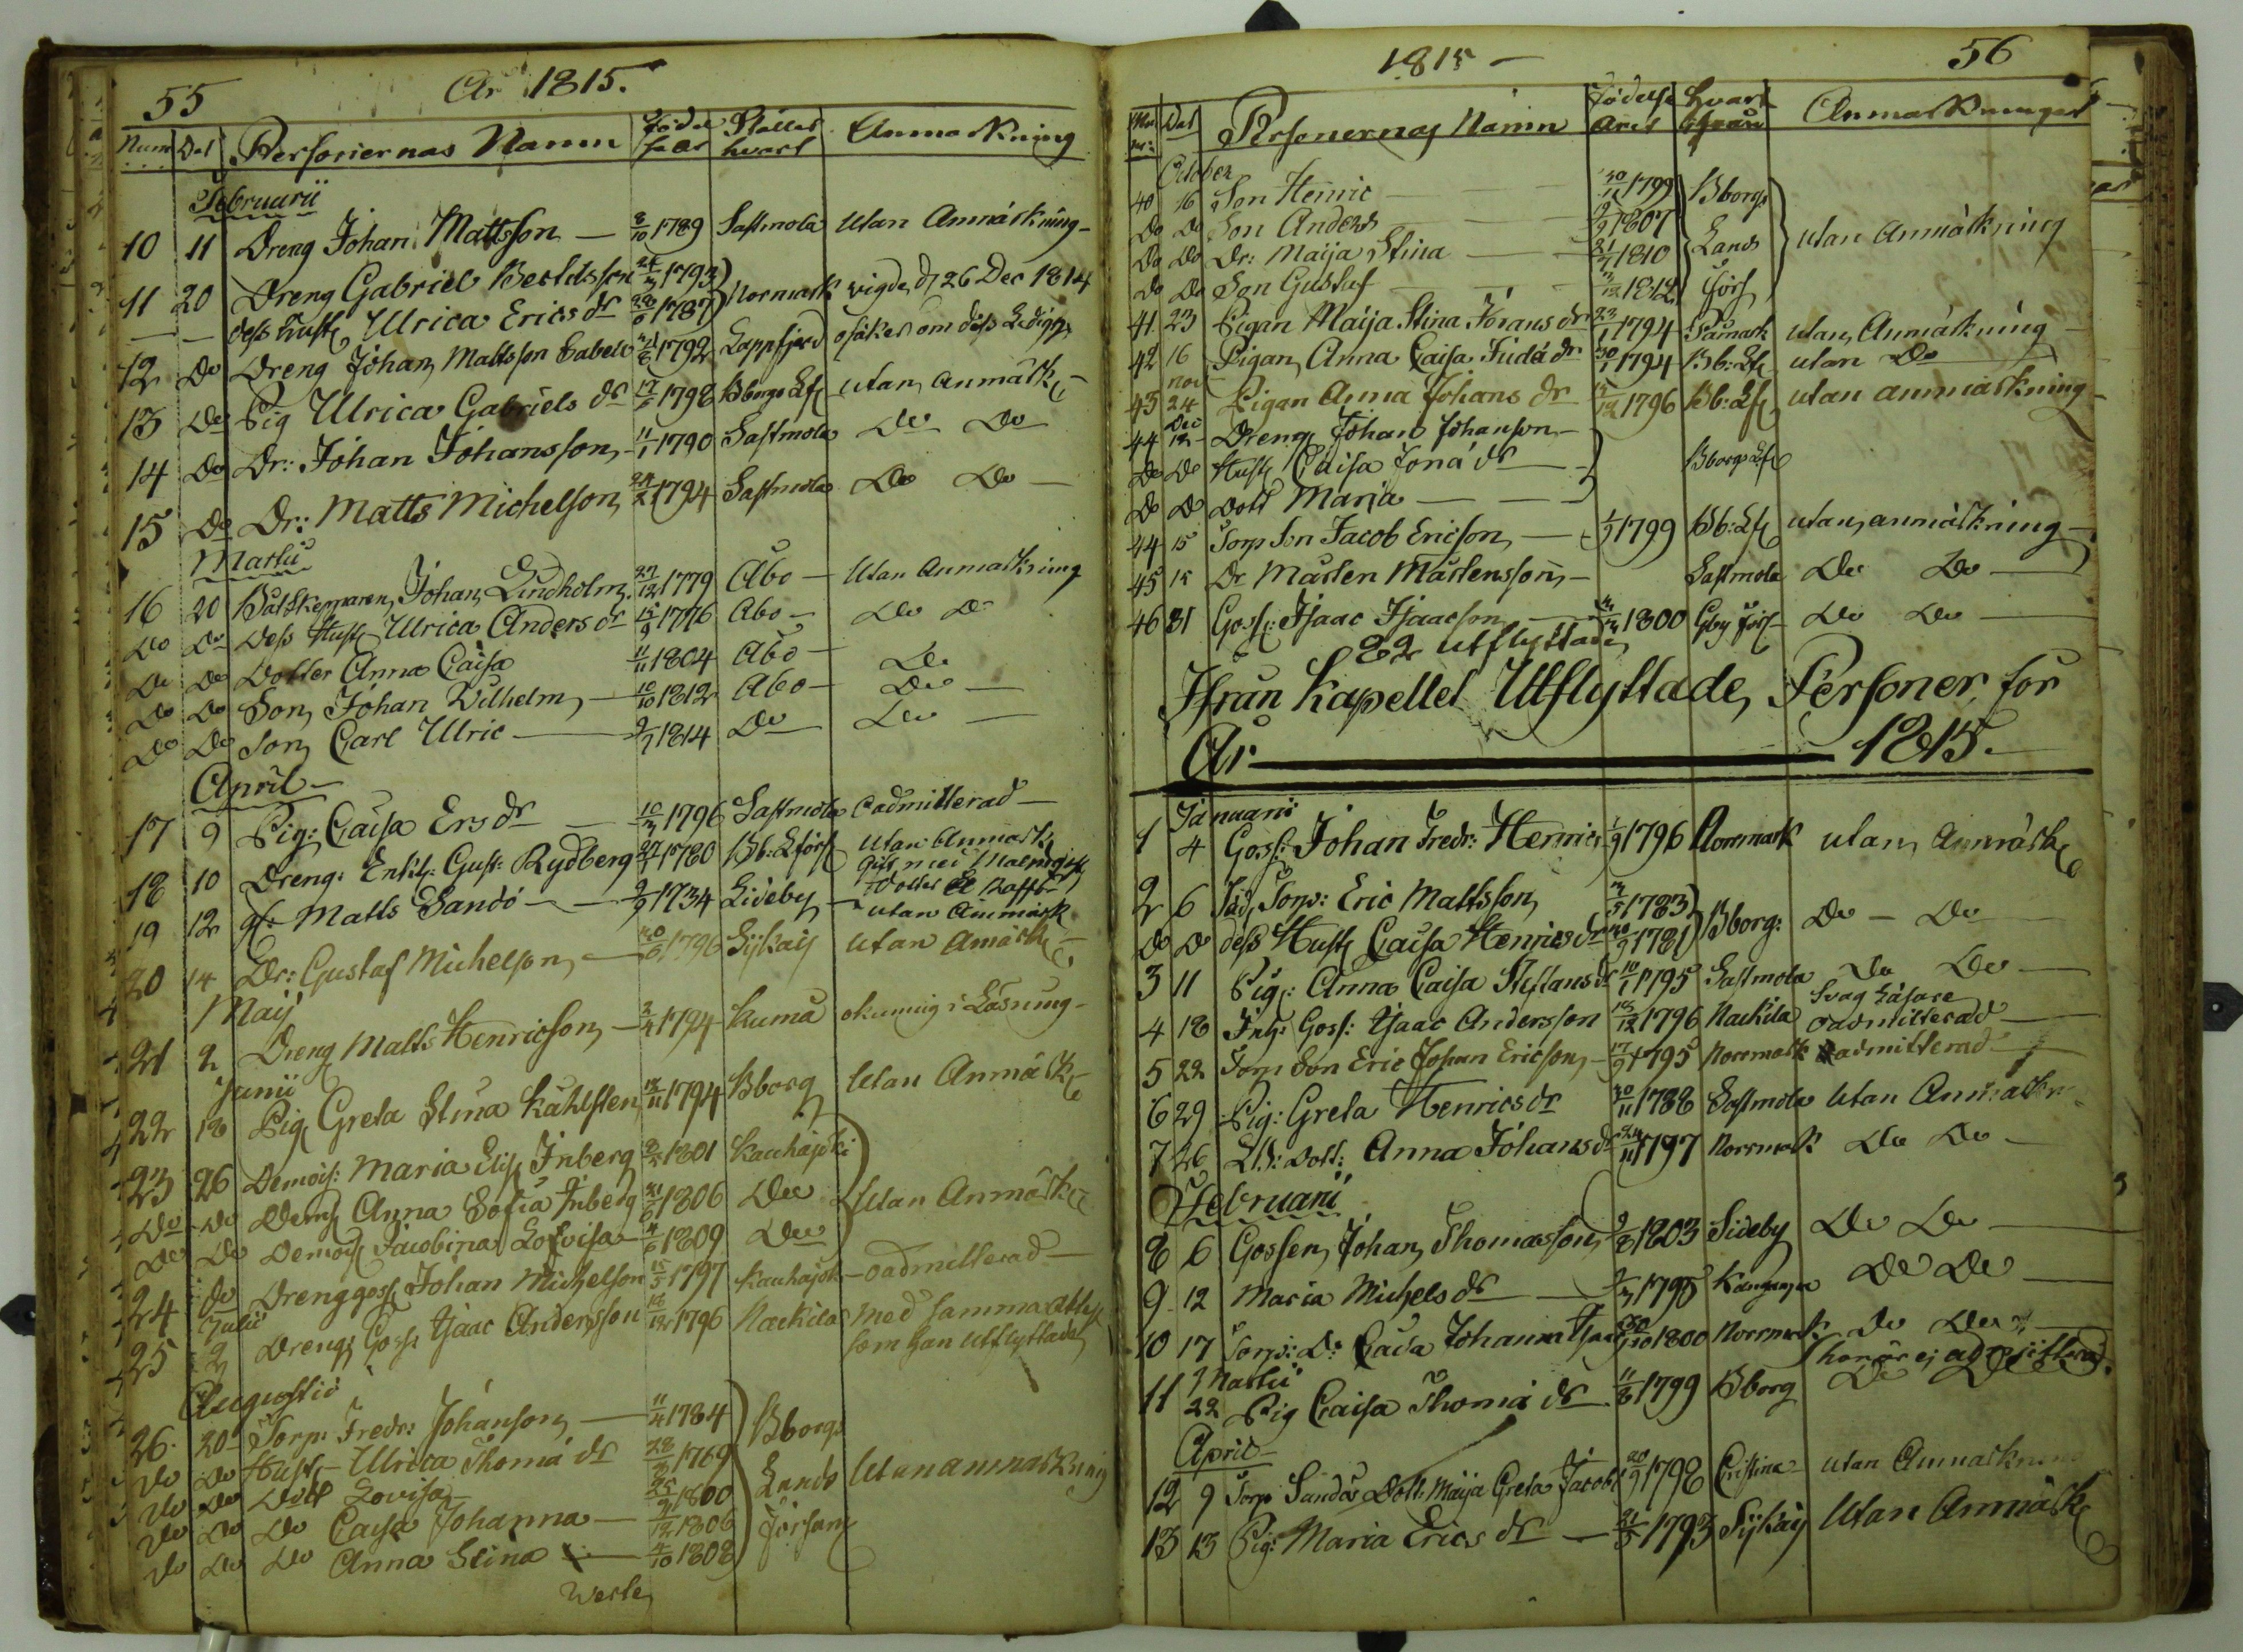 55 År 1815.
Num Dat Personernas Namn Födel se år Stället hvart Anmärkning
Februarii
10 11 Dreng Johan Mattsson — 8/10 1789 Sastmola Utan Anmärkning —
11 20 Dreng Gabriel Bertilsson 1793 Norrmark vigde d 26 Dec 1814
— — dess hust Ulrica Erics dr 1787
12 Do Dreng Johan Mattsson 1792 Lappfjerd osäker om dess Ledigh
13 Do Pig Ulrica Gabriels dr 17/6 1798 Bborgs Lf utan anmärk
14 Do Dr: Johan Johansson 11/1 1790 Sastmola Do Do
15 Do Dr: Matts Michelson 24/2 1794 Sastmola Do Do —
Martii
16 20 Båtskepparen Johan Lindholm 27/12 1779 Åbo — Utan Anmarkning
Do Do Dess Hust Ulrica Anders dr 15/9 1776 Abo — Do D
Do Do Dotter Anna Caisa 11/11 1804 Åbo — Do
Do Do Son Johan Vilhelm — 10/10 1812 Abo — Do —
Do Do Son Carl Ulric — 9/7 1814 Do — Do —
April —
17 9 Pig: Caisa Ers dr — 10/3 1796 Sastmola oadmitterad —
18 10 Dreng: Enkl: Gust: Rydberg 1780 Bb: L förs Utan Anmark
19 12 gl: Matts Sandö — 9/9 1734 Sideby — utan Anmärk
20 14 Dr: Gustaf Michelson — 1796 Sÿkaÿ utan Amärk
Maÿ
21 2 Dreng Matts Henricson — 2/4 1794 Kumå okunnig i Läsning —
Junii
22 18 Pig Greta Stina Kahlsten 18/11 1794 Bborg Utan Anmärk
23 26 Demois: Maria Elis Inberg 1801 Kauhajoki
Do Do Dems Anna Sofia Inberg 21/6 1806 Do Utan Anmärk
Do Do Demois Jacobina Lovisa 4/6 1809 Do
24 Do Drenggoss Johan Michelson 15/5 1797 Kauhajok — oadmitterad —
Julii
25 2 Dreng: Goss Isaac Andersson 18/12 1796 Nackila med samma attest
som han Utflyttade
Augustii
26. 20 Torp: Fredr: Johanson — 11/4 1784 Bborgs
Do Do Hust — Ulrica Thoma dr 28/3 1769 Lands Utan anmarkning
Do Do Dott Lovisa 25/9 1800 Församl
Do Do Do Caisa Johanna — 9/12 1806
Do Do Do Anna Stina — 4/10 1808
Werte
1815 — 56
Dat Personernas Namn Födelse året Hvart ifrån Anmärkningar
October
40 16 Son Henric — 30/11 1799 Bborgs
Do Do Son Anders — 1807 Lands utan Anmärkning
Do Do Dr: Maija Stina — 1810
Do Do Son Gustaf — 1812 förs
41 23 Pigan Maija Stina Jörans dr 23/1 1794 Påmark utan Anmärkning
42 16 Pigan Anna Caisa Juda dr 30/1 1794 Bb: Lf utan Do
nov
43 24 Pigan Anna Johans dr 15/12 1796 Bb: Lf utan anmärkning
Dec
44 12 Dreng Johan Johanson
Do Do Hust Caisa Jona dr — Bborgs Lf
Do Do Dott Maria —
44 15 Torp Son Jacob Ericson — 1799 Bb: Lf utan anmärkning
45 15 Dr Mårten Mårtensson — Sastmola Do Do —
46 31 Goss: Isaac Isaacson 1800 Gby förs — Do Do —
82 utflyttade
Ifrån Kapellet Utflyttade Personer för
År — 1815.
Januarii
1 4 Goss: Johan Fredr: Henrics 1/9 1796 Norrmark utan Anmärk
2 6 Torp: Eric Mattsson 1783 Bborg: Do — Do
Do Do dess Hust Caisa Henrics dr 1781
3 11 Pig: Anna Caisa Steffans dr 10/1 1795 Sastmola Do Do —
4 18 Inh: Goss: Isaac Andersson 18/12 1796 Nackila Svag Läsare oadmitterad —
5 22 Torp Son Eric Johan Ericson — 17/9 1795 Norrmark oadmitterad —
6 29 Pig: Greta Henrics dr 30/11 1788 Sastmola Utan Anmärkn
7 26 Dott: Anna Johans dr 24/11 1797 Norrmark Do Do —
Februarii
8 6 Gossen Johan Thomasson 9/8 1803 Sideby Do Do —
9 12 Maria Michels dr — 1795 Do Do —
10 17 Torp: Dr: Caisa Johanna 1800 Norrmark Do Do
hon är ej admitterad.
Martii
11 22 Pig Caisa Thoma dr 11/8 1799 Bborg Do Do
April —
12 9 Torp Sandås Dott: Maija Greta Jacobs 20/9 1798 Cristina utan Anmärkning
13 13 Pig: Maria Erics dr — 21/5 1793 Sÿkaÿ Utan Anmärk